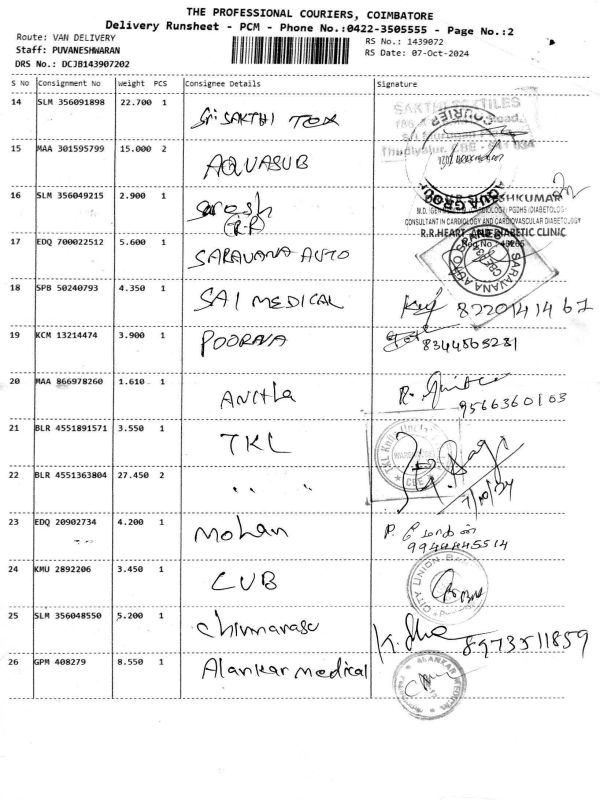 THE PROFESSIONAL COURIERS, COIMBATORE
Delivery Runsheet - PCM - Phone No.:0422-3505555 - Page No.:2
Route: VAN DELIVERY
Staff: PUVANESHWARAN
DRS No.: DCJB143907202
RS No.: 1439072
RS Date: 07-Oct-2024
S No Consignment No Weight PCS Consignee Details Signature
14 SLM 356091898 22.700 1 Sri SAKTHI TEX
SAKTHI TEXTILES
15 MAA 301595799 15.000 2 AQUASUB
AQUA GROUP
16 SLM 356049215 2.900 1
(R.R)
CONSULTANT IN CARDIOLOGY AND CARDIOVASCULAR DIABETOLOGY
R.R.HEART AND DIABETIC CLINIC
17 EDQ 700022512 5.600 1 SARAVANA AUTO
SARAVANA AUTO
18 SPB 50240793 4.350 1 SAI MEDICAL
8220141467
19 KCM 13214474 3.900 1 POORNA
20 MAA 866978260 1.610 1 Anitha
9566360103
21 BLR 4551891571 3.550 1 TKL
22 BLR 4551363804 27.450 2 " "
7/10/24
23 EDQ 20902734 4.200 1 Mohan
9944445514
24 KMU 2892206 3.450 1 CUB
CITY UNION BANK
25 SLM 356048550 5.200 1 Chinnarasu
8973511859
26 GPM 408279 8.550 1 Alankar medical
ALANKAR MEDICAL